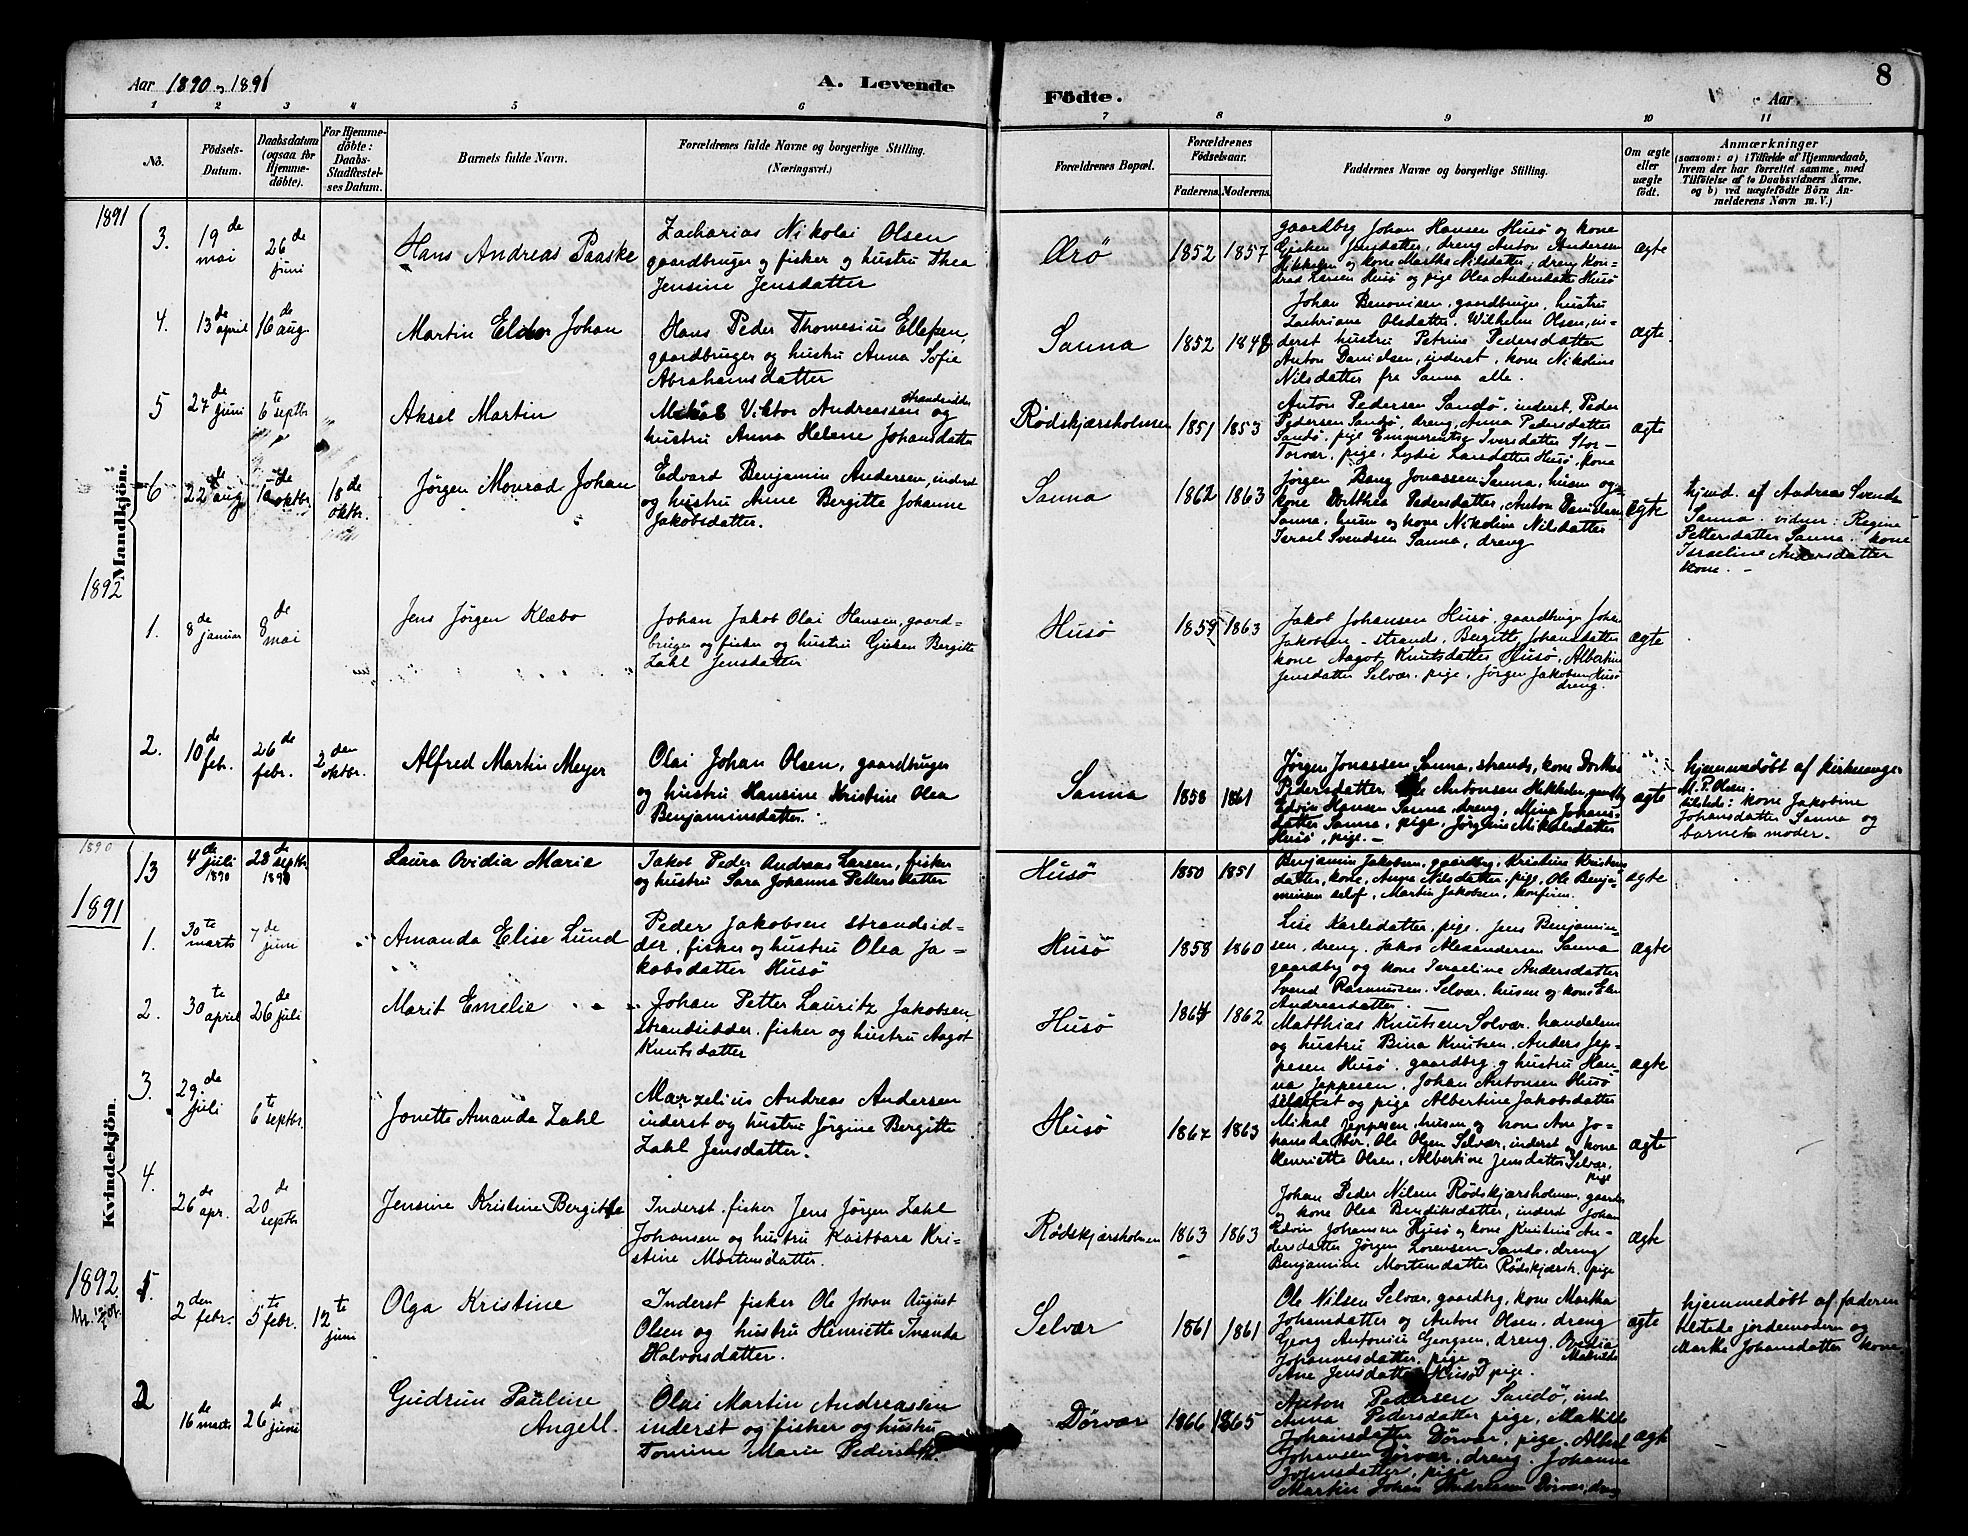 Aar 1890 og 1891
A. Levende
Födte.
Aar
8
1 2 3 4 5 6 7 8 9 10 11
No.
Födsels-
Datum.
Daabsdatum
(ogsaa for
Hjemme-
döbte).
For Hjemme-
döbte:
Daabs-
Stadfæstel-
ses Datum.
Barnets fulde Navn.
Forældrenes fulde Navne og borgerlige Stilling.
(Næringsvei.)
Forældrenes Bopæl.
Forældrenes
Födselsaar.
Faderens. Moderens.
Faddernes Navne og borgerlige Stilling.
Om ægte
eller
uægte
födt.
Anmærkninger
(saasom: a) i Tilfælde af Hjemmedaab,
hvem der har forrettet samme, med
Tilföielse af to Daabsvidners Navne,
og b) ved uægtefödte Börn An-
melderens Navn m.V.)
Mandkjön.
1891
3.
19de
mai
26de
juni
Hans Andreas Paaske
Zacharias Nikolai Olsen
gaardbruger og fisker og hustru Thea
Jensine Jensdatter
Ærö
1852 1857
gaardbrg Johan Hansen Husö og kone
Gjerken Jensdatter, dreng Anton Andersen
Hekkelen og kone Martha Nilsdatter, dreng Kon-
drad Larsen Husö og pige Olea Andersdatter Husö
ægte
4.
13de
april
16de
aug
Martin Johan
Hans Peder Thomesius Ellefsen,
gaardbruger og hustru Anna Sofie
Abrahamsdatter
Sanna
1852 1848
Johan Benonisen, gaardbruger, hustru
Zachriane Olsdatter. Wilhelm Olsen, in-
derst hustru Petrine Pedersdatter
Anton Danielsen, inderst, kone Nikoline
Nilsdatter fra Sanna alle.
ægte
5
27de
juni
6te
septbr
Aksel Martin
Mikal Viktor Andreassen strandsidder og
hustru Anna Helene Johansdatter
Rödskjærsholmen
1851 1853
Anton Pedersen Sandö, inderst, Peder
Pedersen Sandö, dreng, Anna Pedersdatter
Sandö, pige Emmerentse Iversdatter Stor-
Torvær, pige, Lydie Larsdatter Husö, kone
ægte
6
22de
aug
10de
oktbr.
18de
oktbr.
Jörgen Monrad Johan
Edvard Benjamin Andersen, inderst
og hustru Anne Bergitte Johanne
Jakobsdatter.
Sanna
1862 1863
Jörgen Bang Jonassen Sanna, husm og
kone Dorthea Pedersdatter, Anton Danielsen
Sanna, husm og kone Nikoline Nilsdatter
Israel Svendsen Sanna, dreng
ægte
hjemd. af Andreas Svends
Sanna. vidner: Regine
Pettersdatter Sanna. kone
Israeline Andersdatter
kone. -
1892
1.
8de
januar
8de
mai
Jens Jörgen Klæbo
Johan Jakob Olai Hansen, gaard-
bruger og fisker og hustru Gjeken Bergitte
Zahl Jensdatter
Husö
1859 1863
Jakob Johansen Husö, gaardbruger Johan
Jakobsen - strands, Bergitte Johansdatter
kone Aagot Knutsdatter Husö, Albertine
Jensdatter Selvær, pige, Jörgen Jakobsen Husö
dreng.
ægte
2.
10de
febr.
26de
febr.
2den
oktbr.
Alfred Martin Meyer
Olai Johan Olsen, gaardbruger
og hustru Hansine Kristine Olea
Benjaminsdatter.
Sanna
1858 1861
Jörgen Jonassen Sanna, strands, kone Dorthea
Pedersdatter, Ole Antonsen Hekkelen, gaardbrg
Edvin Hansen Sanna, dreng, Mina Johans-
datter Sanna, pige, Jörgine Mikalsdatter
Husö, pige. -
ægte
hjemmedöbt af kirkesanger
M. P. Olsen.
tilstede: kone Jakobine
Johansdatter Sanna og
barnets moder.
Kvindekjön.
1890
13
4de
juli
1890
28de
septbr
1890
Laura Ovidia Marie
Jakob Peder Andreas Larsen, fisker
og hustru Sara Johanna Pettersdatter
Husö
1850 1851
Benjamin Jakobsen, gaardbrg, Kristine Kristens
datter, kone, Anna Nilsdatter, pige, Ole Benja-
minsen self, Martin Jakobsen, konfirm.
ægte
1891
1.
30te
marts
7de
juni
Amanda Elise Lund
Peder Jakobsen strandsid-
der, fisker og hustru Olea Ja-
kobsdatter Husö
Husö
1858 1860
Lise Karlsdatter, pige. Jens Benjamin-
sen, dreng. Jakob Alexandersen Sanna
gaardbrg og kone Israeline Andersdatter
Svend Rasmussen. Selvær, husm og kone Elen
Andreasdatter.
ægte
2.
30te
april
26de
juli
Marit Emelie
Johan Petter Lauritz Jakobsen
strandsidder, fisker og hustru Aagot
Knutsdatter
Husö
1864 1862
Matthias Knutsen Selvær, handelsm
og hustru Bina Knutsen. Anders Jep-
pesen Husö, gaardbrg. og hustru Han-
na Jeppesen. Johan Antonsen Husö
selvfost og pige Albertine Jakobsdatter
ægte
3.
29de
juli
6te
septbr.
Jonette Amanda Zahl
Marzelius Andreas Andersen
inderst og hustru Jörgine Bergitte
Zahl Jensdatter.
Husö
1867 1863
Mikal Jeppesen, husm og kone Ane Jo-
hansdatter, Ole Olsen Selvær, inderst og kone
Henriette Olsen, Albertine Jensdatter Selvær,
pige
ægte
4.
26de
apr.
20de
septbr
Jensine Kristine Bergitte
Inderst. fisker Jens Jörgen Zahl
Johansen og hustru Kastbara Kri-
stine Mortensdatter.
Rödskjærsholmen
1863 1863
Johan Peder Nilsen Rödskjærsholmen, gaardbr
og kone Olea Bendiksdatter, inderst Johan
Edvin Johansen Husö og kone Kristine An-
dersdatter Jörgen Lorensen Sandö, dreng
Benjamine Mortensdatter Rödskjærsh. pige
ægte
1892
1.
2den
febr.
5te
febr.
12te
juni
Olga Kristine
Inderst fisker Ole Johan August
Olsen og hustru Henriette Amanda
Halvorsdatter.
Selvær
1861 1861
Ole Nilsen Selvær, gaardbrg, kone Martha
Johansdatter og Anton Olsen, dreng
Georg Antonius Georgsen, dreng, Ovedia Mathilde
Johannesdatter, pige og
Ane Jensdatter Husö pige.
ægte
hjemmedöbt af faderen
tilstede jordemoderen og
Marthe Johansdatter kone
2
16de
marts
26de
juni
Gudrun Pauline
Angell.
Olai Martin Andreassen
inderst og fisker og hustru
Tomine Marie Pedersdtr.
Dörvær
1866 1865
Anton Pedersen Sandö, ind.
Anna Pedersdatter pige, Mathilde
Johansdatter Dörvær, pige, Albert
Johansen Dörvær, dreng. Johanna
Johnsdatter, pige
Martin Johan Andreassen Dörvær, dreng
ægte